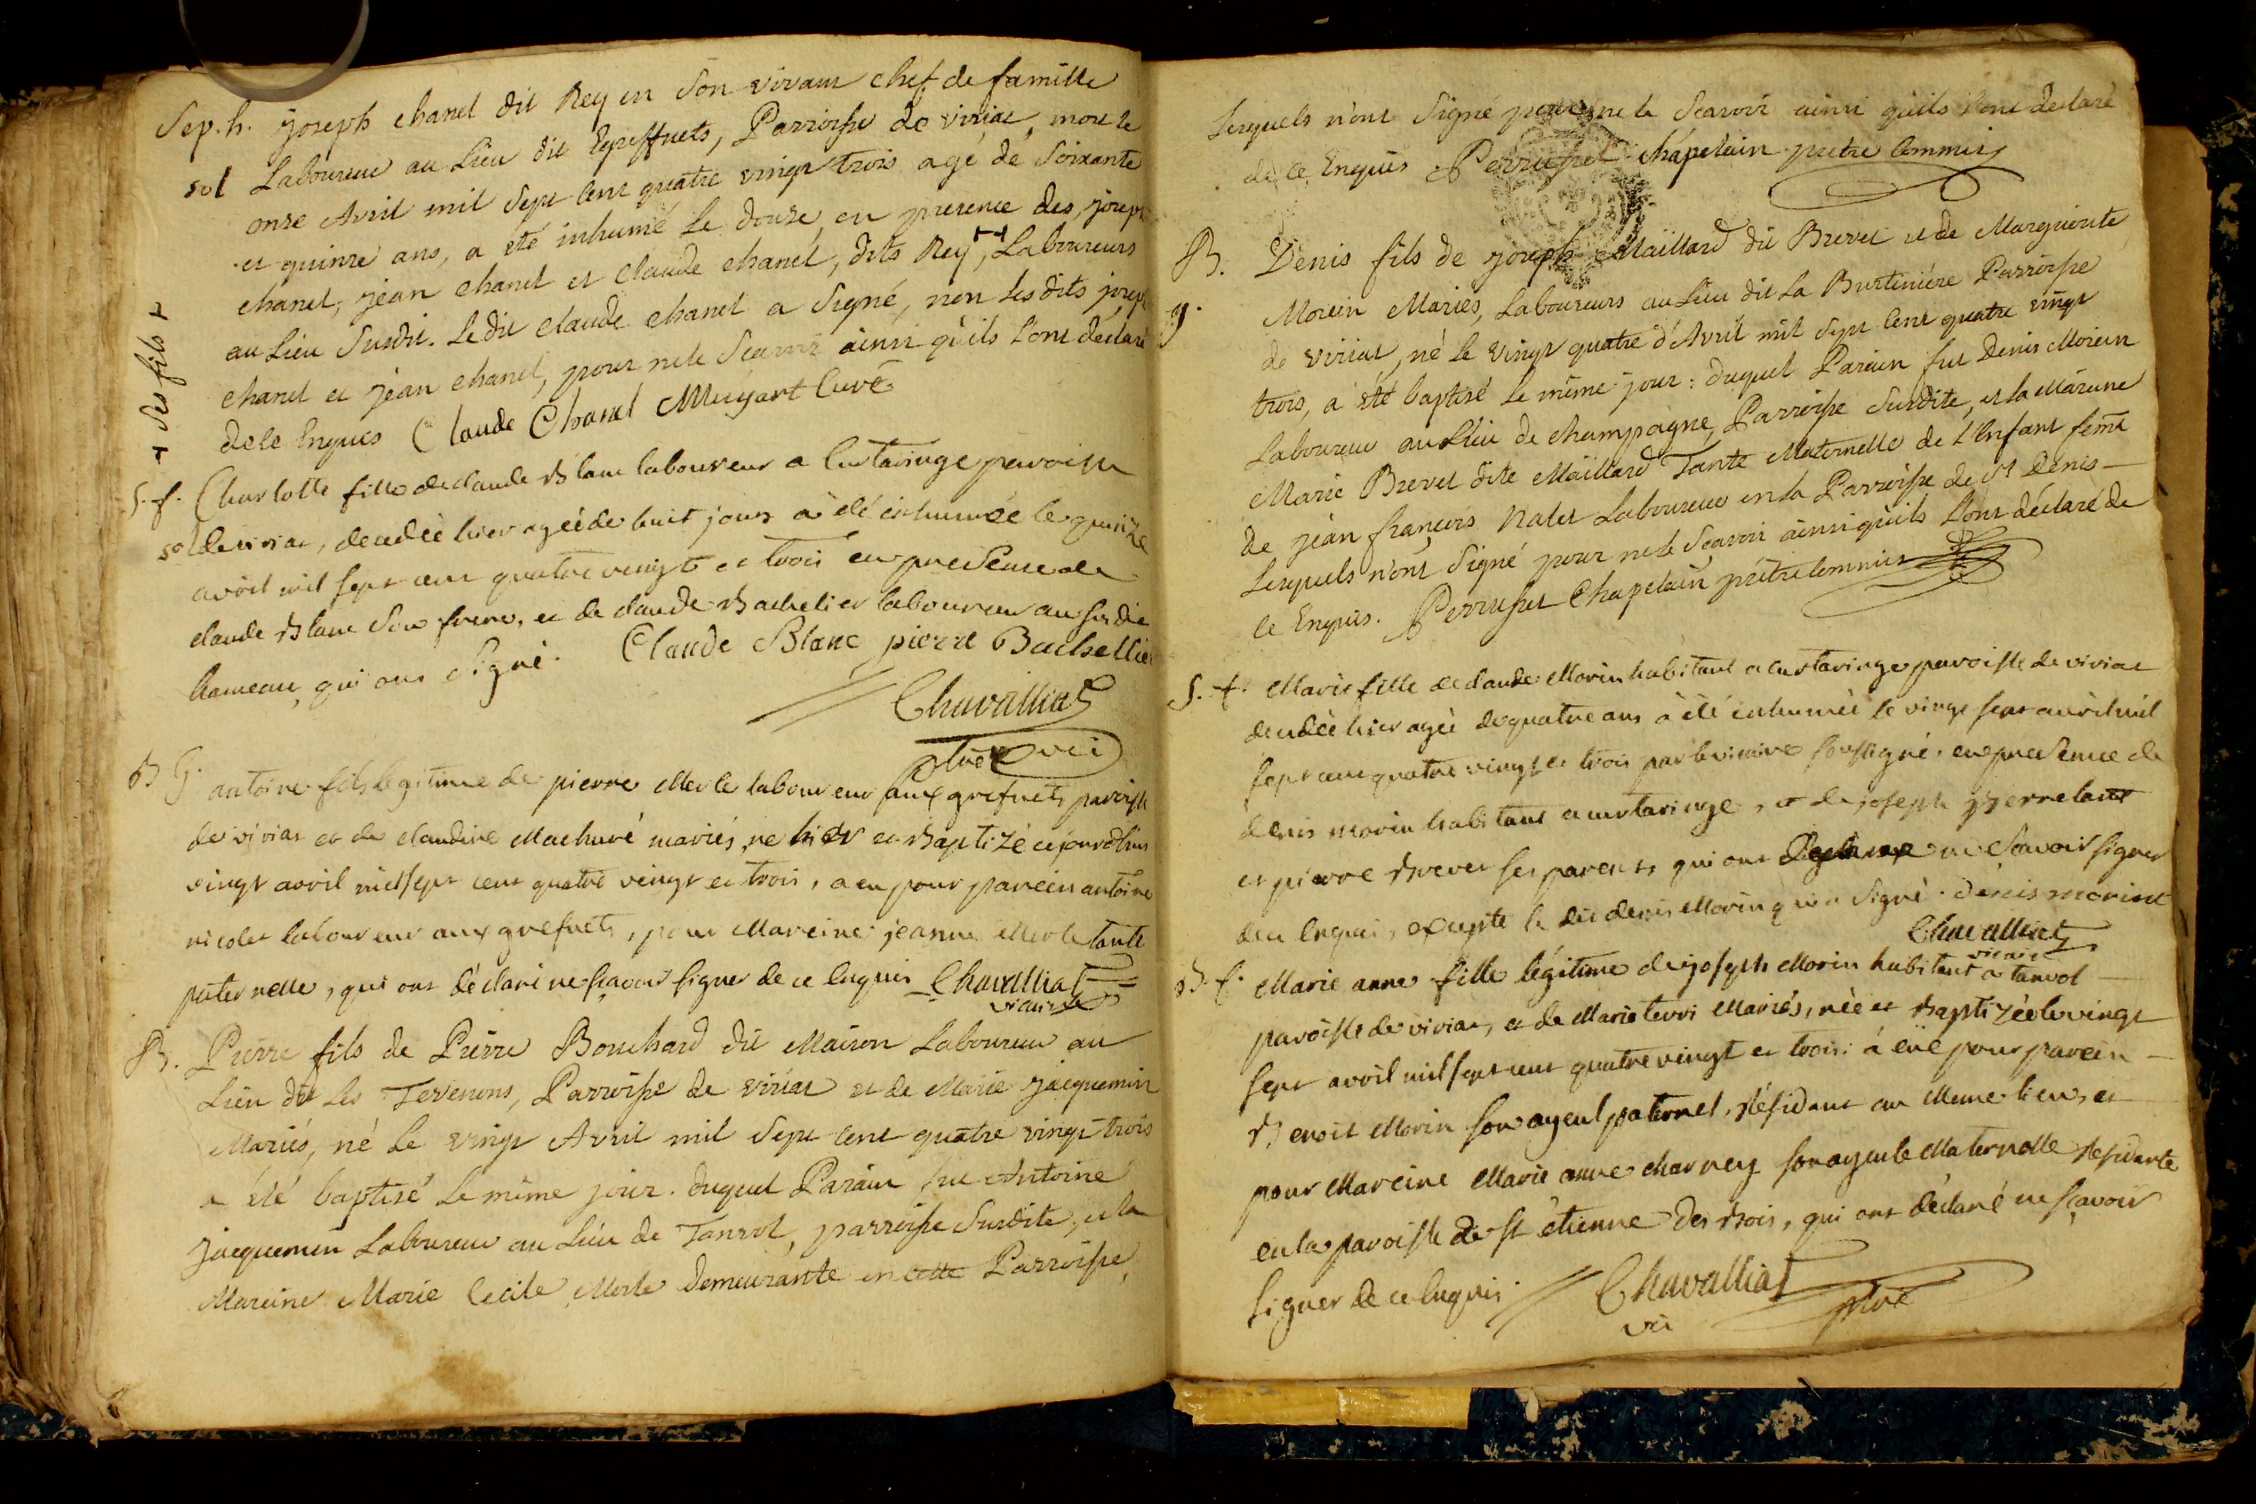 Sep. h. joseph chanel dit Rey en son vivant chef de famille
sol Laboureur au Lieu dit Egreffnets, Parroisse de viriat, mort le
onse Avril mil sept cent quatre vingt trois agé de soixante
et quinze ans, a été inhumé le douze, en presence des joseph
chanel, jean chanel et Claude chanel, dits Rey, Laboureurs
+ ses fils +
au Lieu susdit. Ledit Claude chanel a signé, non lesdits joseph
chanel et jean chanel, pour ne le sçavoir ainsi qu'ils l'ont declaré
de ce Enquis Claude Chanel Curé
S. f. Charlotte fille de claude Blanc laboureur a Curtaringe paroisse
sol de viriat, decedée hier agée de huit jours a été inhumée le quinze
avril mil sept cent quatre vingt et trois en presence de
claude Blanc son frere, et de claude Bachelier laboureur au susdit
hameau, qui ont signé. Claude Blanc pierre Bachellier
Chavalliat
ptre vic
B G. antoine fils legitime de pierre Merle laboureur aux grefnets paroisse
de viriat et de claudine Machuré mariés, né hier et Baptizé cejourdhui
vingt avril mil sept cent quatre vingt et trois, a eu pour parein antoine
nicolet laboureur aux grefnets, pour Mareine jeanne Merle tante
paternelle, qui ont déclaré ne sçavoir signer de ce Enquis Chavalliat
vicaire
B. Pierre fils de Pierre Bouchard dit Maison Laboureur au
Lieu dit Les Tevenons, Parroisse de viriat et de Marie jacquemin
Mariés, né Le vingt Avril mil sept cent quatre vingt trois
a été baptisé Le même jour. duquel Parain fut Antoine
jacquemin Laboureur au Lieu de Tanvol, parroisse susdite, et la
Mareine Marie Cecile Merle Demeurante en cette Parroisse,
Lesquels n'ont signé pour ne le sçavoir ainsi qu'ils l'ont declaré
de ce Enquis Perruset chapelain prêtre commis
B. Denis fils de joseph Maillard dit Brevet et de Marguerite
g. Morein Mariés, Laboureurs au Lieu dit La Burtiniére Parroisse
de viriat, né le vingt quatre d'Avril mil sept cent quatre vingt
trois, a été baptisé le même jour: duquel Parain fut Denis Morein
Laboureur au Lieu de champagne, Parroisse susdite, et la Mareine
Marie Brevet dite Maillard Tante Maternelle de L'Enfant fem̃e
de jean françois Laboureur en la Parroisse de St Denis
Lesquels n'ont signé pour ne le sçavoir ainsi qu'ils l'ont déclaré de
ce Enquis. Perruset Chapelain prêtre commis
S. f. Marie fille de claude Morin habitant a curtaringe paroisse de viriat
decedée hier agée de quatre ans a été inhumée le vingt sept avril mil
sept cent quatre vingt et trois par le vicaire soussigné, en presence de
denis morin habitant a curtaringe, et de joseph
et pierre Brevet ses parents qui ont ne sçavoir signer
de ce Enquis, excepté le dit denis Morin qui a signé. denis morint
Chavalliat
vicaire
B. f. Marie anne fille légitime de joseph Morin habitant a tanvol
paroisse de viriat, et de Marie Mariés, née et Baptizée le vingt
sept avril mil sept cent quatre vingt et trois: a eüe pour parein
Benoit Morin son ayeul paternel, Résidant au Meme lieu, et
pour Mareine Marie anne charvey son ayeule Maternelle Residante
en la paroisse de st étienne des Bois, qui ont déclaré ne sçavoir
signer de ce Enquis. Chavalliat
vic ptre